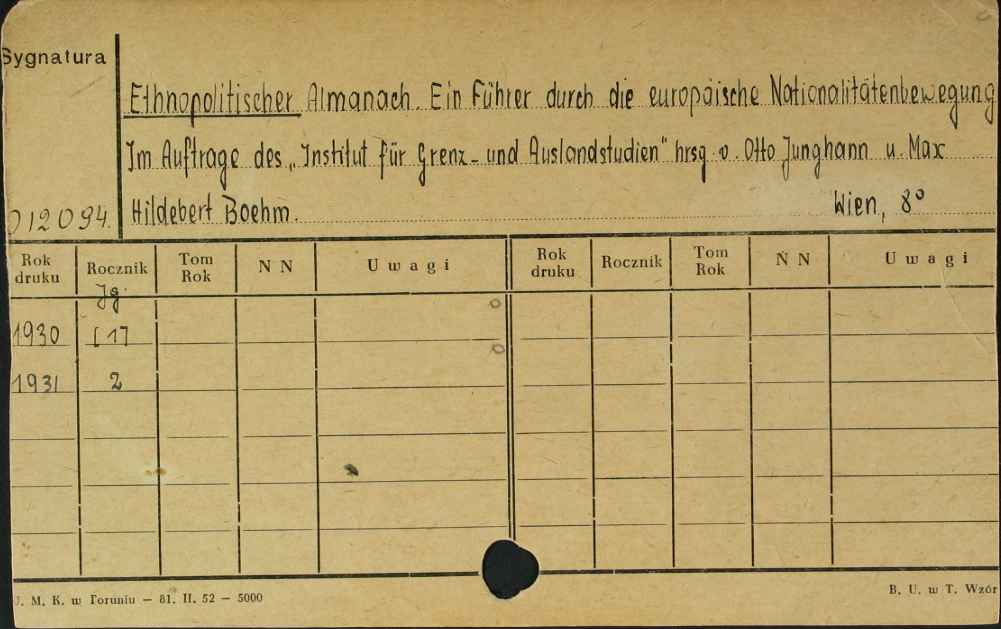 Sygnatura
Ethnopolitischer Almanach. Ein Führer durch die europäische Nationalitätenbewegung
Im Auftrage des „Institut für Grenz- und Auslandstudien" hrsg. v. Otto Junghann u. Max
012094. Hildebert Boehm. Wien, 8°
Rok druku Rocznik Tom Rok N N Uwagi Rok druku Rocznik Tom Rok N N Uwagi
Jg.
1930 [1]
1931 2
U. M. K. w Toruniu — 81. II. 52 — 5000 B. U. w T. Wzór